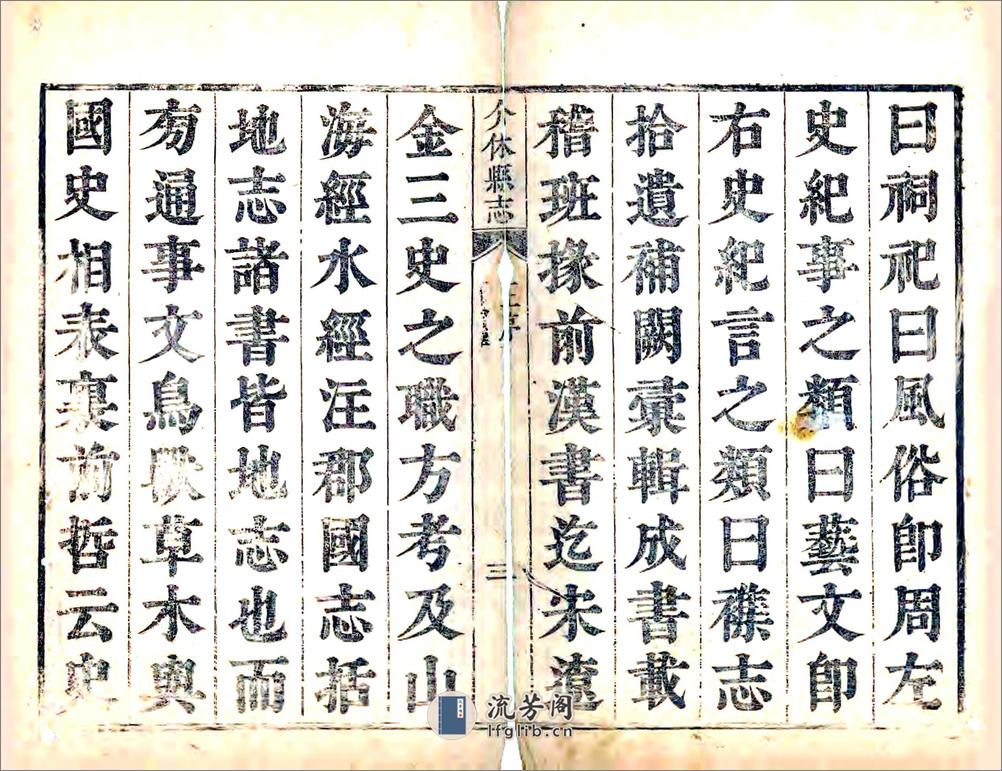 曰祠祀曰風俗卽周左
史紀事之類曰藝文卽
右史紀言之類曰襍志
拾遺補闕彚輯成書載
稽班掾前漢書迄宋遼
介休縣志
序
三
金三史之職方考及山
海經水經注郡國志括
地志諸書皆地志也而
旁通事文鳥獸草木與
國史相表裏前哲云史
流芳阁
lfglib.cn